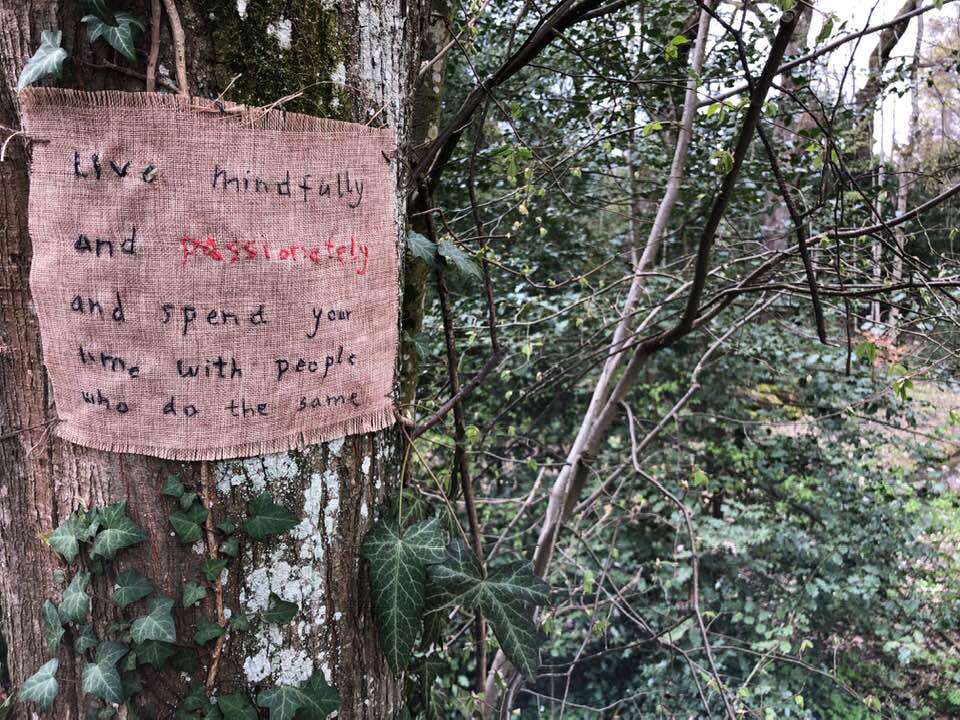 Live mindfully
and passionately
and spend your
time with people
who do the same